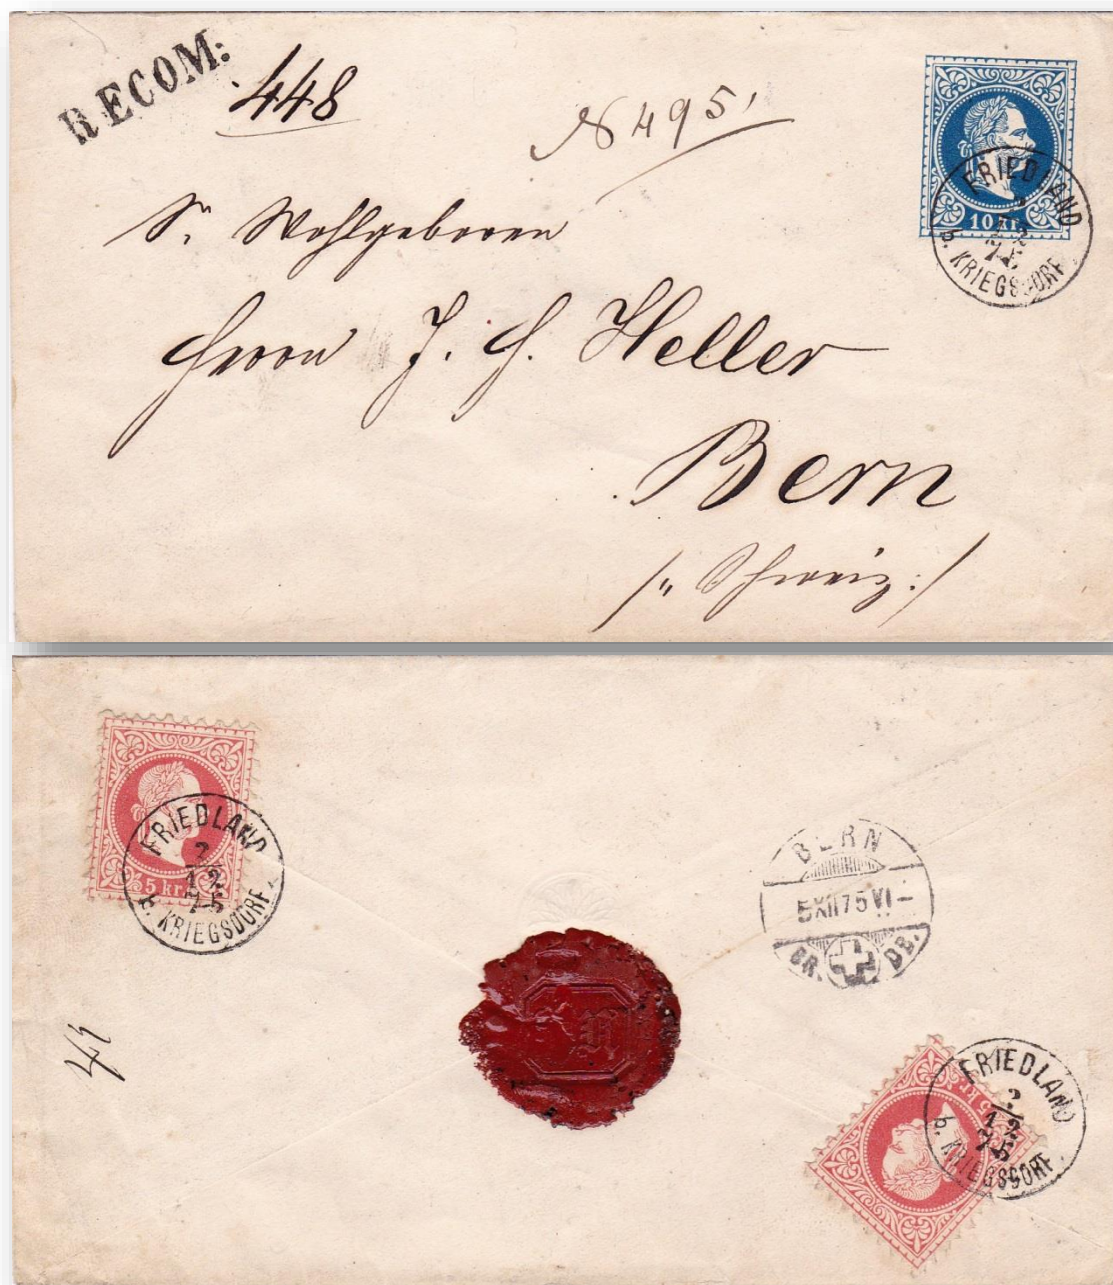 RECOM:
448
N 495
10 kr.
FRIEDLAND
2
12
75
b. KRIEGSDORF
Sr Wohlgeboren
Herrn J. H. Heller
Bern
/: Schweiz :/
5 kr.
FRIEDLAND
2
12
75
b. KRIEGSDORF.
BERN
5 XII 75 VI –
BR. DB.
5 kr.
FRIEDLAND
2
12
75
b. KRIEGSDORF